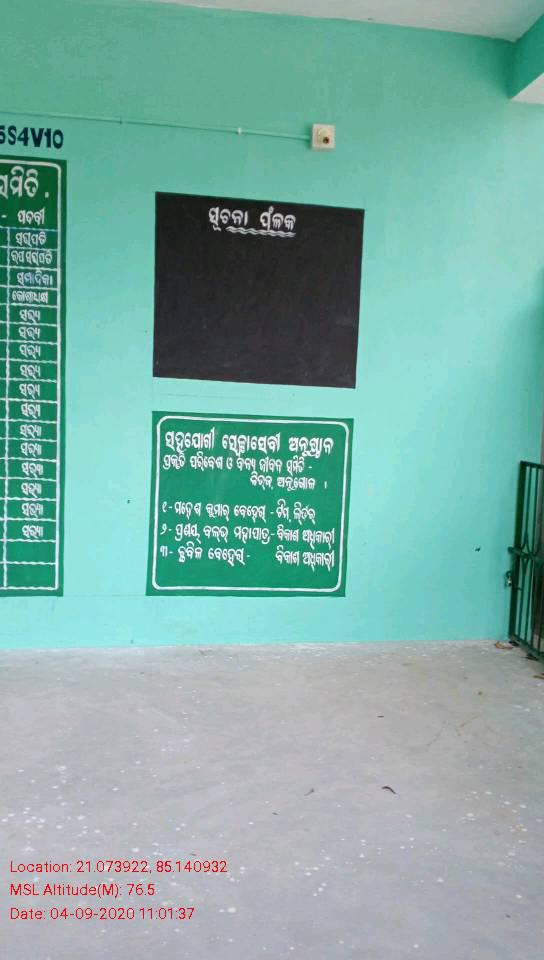 6S4V10
ସମିତି .
- ପଦବୀ
ସଭାପତି
ଉପସଭାପତି
ସମ୍ପାଦିକା
କୋଶାଧକ୍ଷା
ସଭ୍ୟା
ସଭ୍ୟା
ସଭ୍ୟା
ସଭ୍ୟା
ସଭ୍ୟା
ସଭ୍ୟା
ସଭ୍ୟା
ସଭ୍ୟା
ସଭ୍ୟା
ସଭ୍ୟା
ସଭ୍ୟା
ସଭ୍ୟା
ସୂଚନା ଫଳକ
ସହଯୋଗୀ ସ୍ୱେଚ୍ଛାସେବୀ ଅନୁଷ୍ଠାନ
ପ୍ରକୃତି ପରିବେଶ ଓ ବନ୍ୟ ଜୀବନ ସମିତି -
ଅନୁଗୋଳ ।
୧- ମହେଶ କୁମାର ବେହେରା - ଟିମ୍ ଲିଡର୍
୨- ପ୍ରଣୟ ବଲଭ ମହାପାତ୍ର - ବିକାଶ ଅଧିକାରୀ
୩- ଛବିଳ ବେହେରା - ବିକାଶ ଅଧିକାରୀ
Location: 21.073922, 85.140932
MSL Altitude(M): 76.5
Date: 04-09-2020 11:01:37